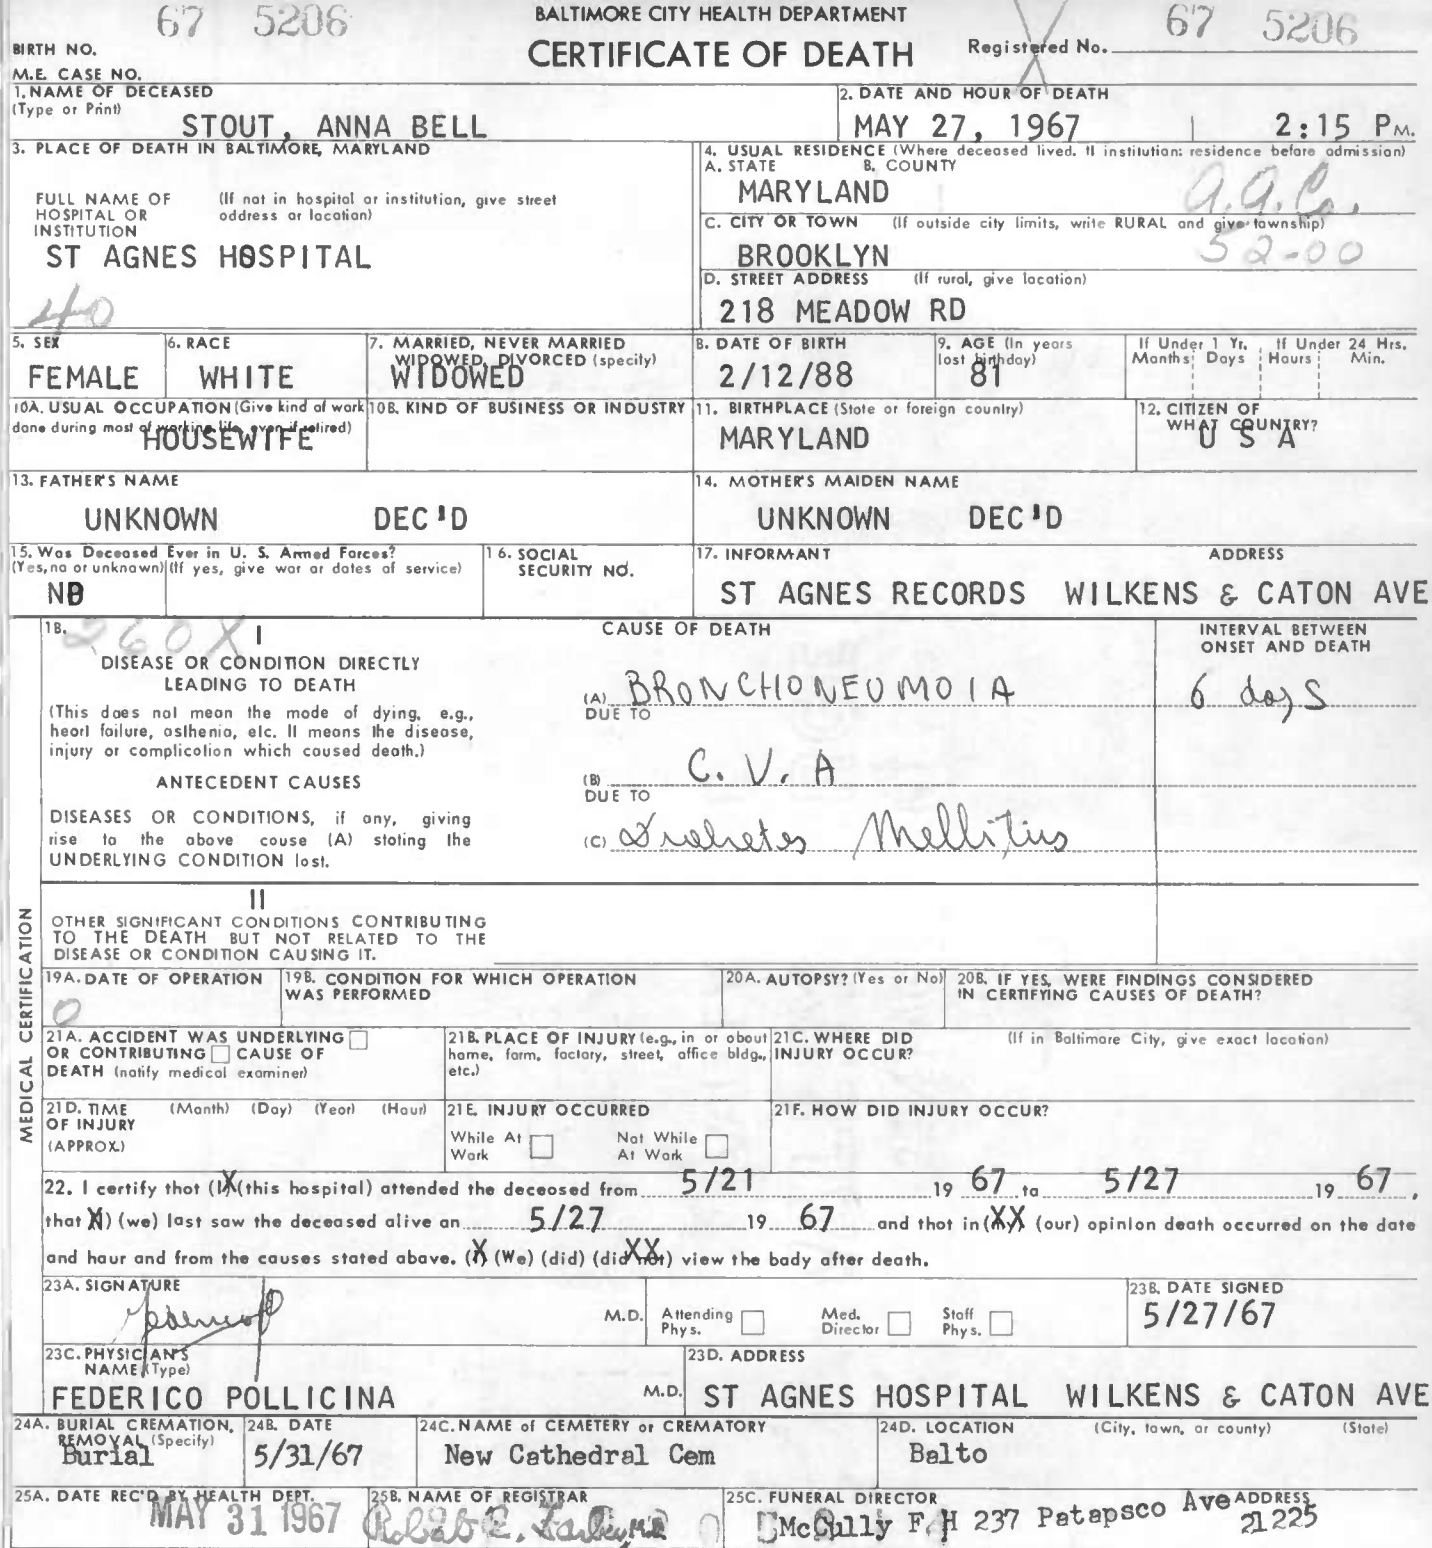 67 5206
BALTIMORE CITY HEALTH DEPARTMENT
67 5206
BIRTH NO.
CERTIFICATE OF DEATH
Registered No.
M.E. CASE NO.
1. NAME OF DECEASED
(Type or Print)
STOUT, ANNA BELL
2. DATE AND HOUR OF DEATH
MAY 27, 1967 2:15 P M.
3. PLACE OF DEATH IN BALTIMORE, MARYLAND
FULL NAME OF HOSPITAL OR INSTITUTION
(If not in hospital or institution, give street address or location)
ST AGNES HOSPITAL
40
4. USUAL RESIDENCE (Where deceased lived. If institution: residence before admission)
A. STATE B. COUNTY
MARYLAND A.A.Co.
C. CITY OR TOWN (If outside city limits, write RURAL and give township)
BROOKLYN 52-00
D. STREET ADDRESS (If rural, give location)
218 MEADOW RD
5. SEX
FEMALE
6. RACE
WHITE
7. MARRIED, NEVER MARRIED
WIDOWED, DIVORCED (specify)
WIDOWED
8. DATE OF BIRTH
2/12/88
9. AGE (In years
last birthday)
81
If Under 1 Yr. If Under 24 Hrs.
Months Days Hours Min.
10A. USUAL OCCUPATION (Give kind of work
done during most of working life, even if retired)
HOUSEWIFE
10B. KIND OF BUSINESS OR INDUSTRY
11. BIRTHPLACE (State or foreign country)
MARYLAND
12. CITIZEN OF
WHAT COUNTRY?
U S A
13. FATHER'S NAME
UNKNOWN DEC'D
14. MOTHER'S MAIDEN NAME
UNKNOWN DEC'D
15. Was Deceased Ever in U. S. Armed Forces?
(Yes, no or unknown) (If yes, give war or dates of service)
NO
16. SOCIAL
SECURITY NO.
17. INFORMANT ADDRESS
ST AGNES RECORDS WILKENS & CATON AVE
MEDICAL CERTIFICATION
18. 260X I
DISEASE OR CONDITION DIRECTLY
LEADING TO DEATH
(This does not mean the mode of dying, e.g.,
heart failure, asthenia, etc. It means the disease,
injury or complication which caused death.)
ANTECEDENT CAUSES
DISEASES OR CONDITIONS, if any, giving
rise to the above cause (A) stating the
UNDERLYING CONDITION last.
CAUSE OF DEATH
(A) BRONCHONEUMOIA
DUE TO
(B) C. V. A
DUE TO
(C) Diabetes Mellitius
INTERVAL BETWEEN
ONSET AND DEATH
6 days
II
OTHER SIGNIFICANT CONDITIONS CONTRIBUTING
TO THE DEATH BUT NOT RELATED TO THE
DISEASE OR CONDITION CAUSING IT.
19A. DATE OF OPERATION
0
19B. CONDITION FOR WHICH OPERATION
WAS PERFORMED
20A. AUTOPSY? (Yes or No)
20B. IF YES, WERE FINDINGS CONSIDERED
IN CERTIFYING CAUSES OF DEATH?
21A. ACCIDENT WAS UNDERLYING
OR CONTRIBUTING CAUSE OF
DEATH (notify medical examiner)
21B. PLACE OF INJURY (e.g., in or about
home, farm, factory, street, office bldg.,
etc.)
21C. WHERE DID (If in Baltimore City, give exact location)
INJURY OCCUR?
21D. TIME (Month) (Day) (Year) (Hour)
OF INJURY
(APPROX.)
21E. INJURY OCCURRED
While At Work
Not While At Work
21F. HOW DID INJURY OCCUR?
22. I certify that (I) (this hospital) attended the deceased from 5/21 19 67 to 5/27 19 67,
that (I) (we) last saw the deceased alive on 5/27 19 67 and that in (XX) (our) opinion death occurred on the date
and hour and from the causes stated above. (X) (We) (did) (did not) view the body after death.
23A. SIGNATURE
M.D.
Attending Phys.
Med. Director
Staff Phys.
23B. DATE SIGNED
5/27/67
23C. PHYSICIAN'S
NAME (Type)
FEDERICO POLLICINA M.D.
23D. ADDRESS
ST AGNES HOSPITAL WILKENS & CATON AVE
24A. BURIAL CREMATION,
REMOVAL (Specify)
Burial
24B. DATE
5/31/67
24C. NAME of CEMETERY or CREMATORY
New Cathedral Cem
24D. LOCATION (City, town, or county) (State)
Balto
25A. DATE REC'D BY HEALTH DEPT.
MAY 31 1967
25B. NAME OF REGISTRAR
Robert E. Farber, M.D.
25C. FUNERAL DIRECTOR ADDRESS
McCully F.H 237 Patapsco Ave 21225